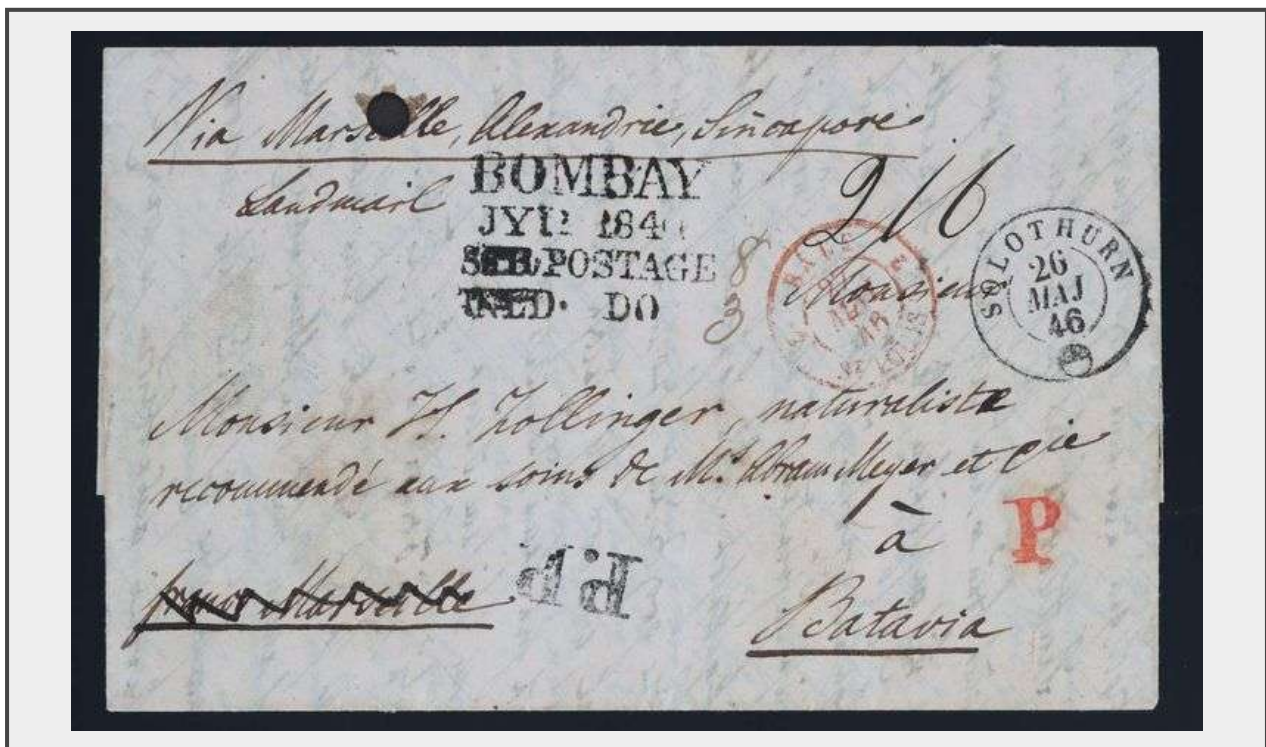 Via Marseille, Alexandrie, Sincapore
Landmail
BOMBAY
JY 1846
POSTAGE
DO
2/6
8
3
SOLOTHURN
26
MAJ
46
Monsieur
BALE
ST LOUIS
Monsieur H. Zollinger, naturaliste
recommendé aux soins de Mr. Abram Meyer et cie
à
P
Batavia
franco Marseille
P.P.